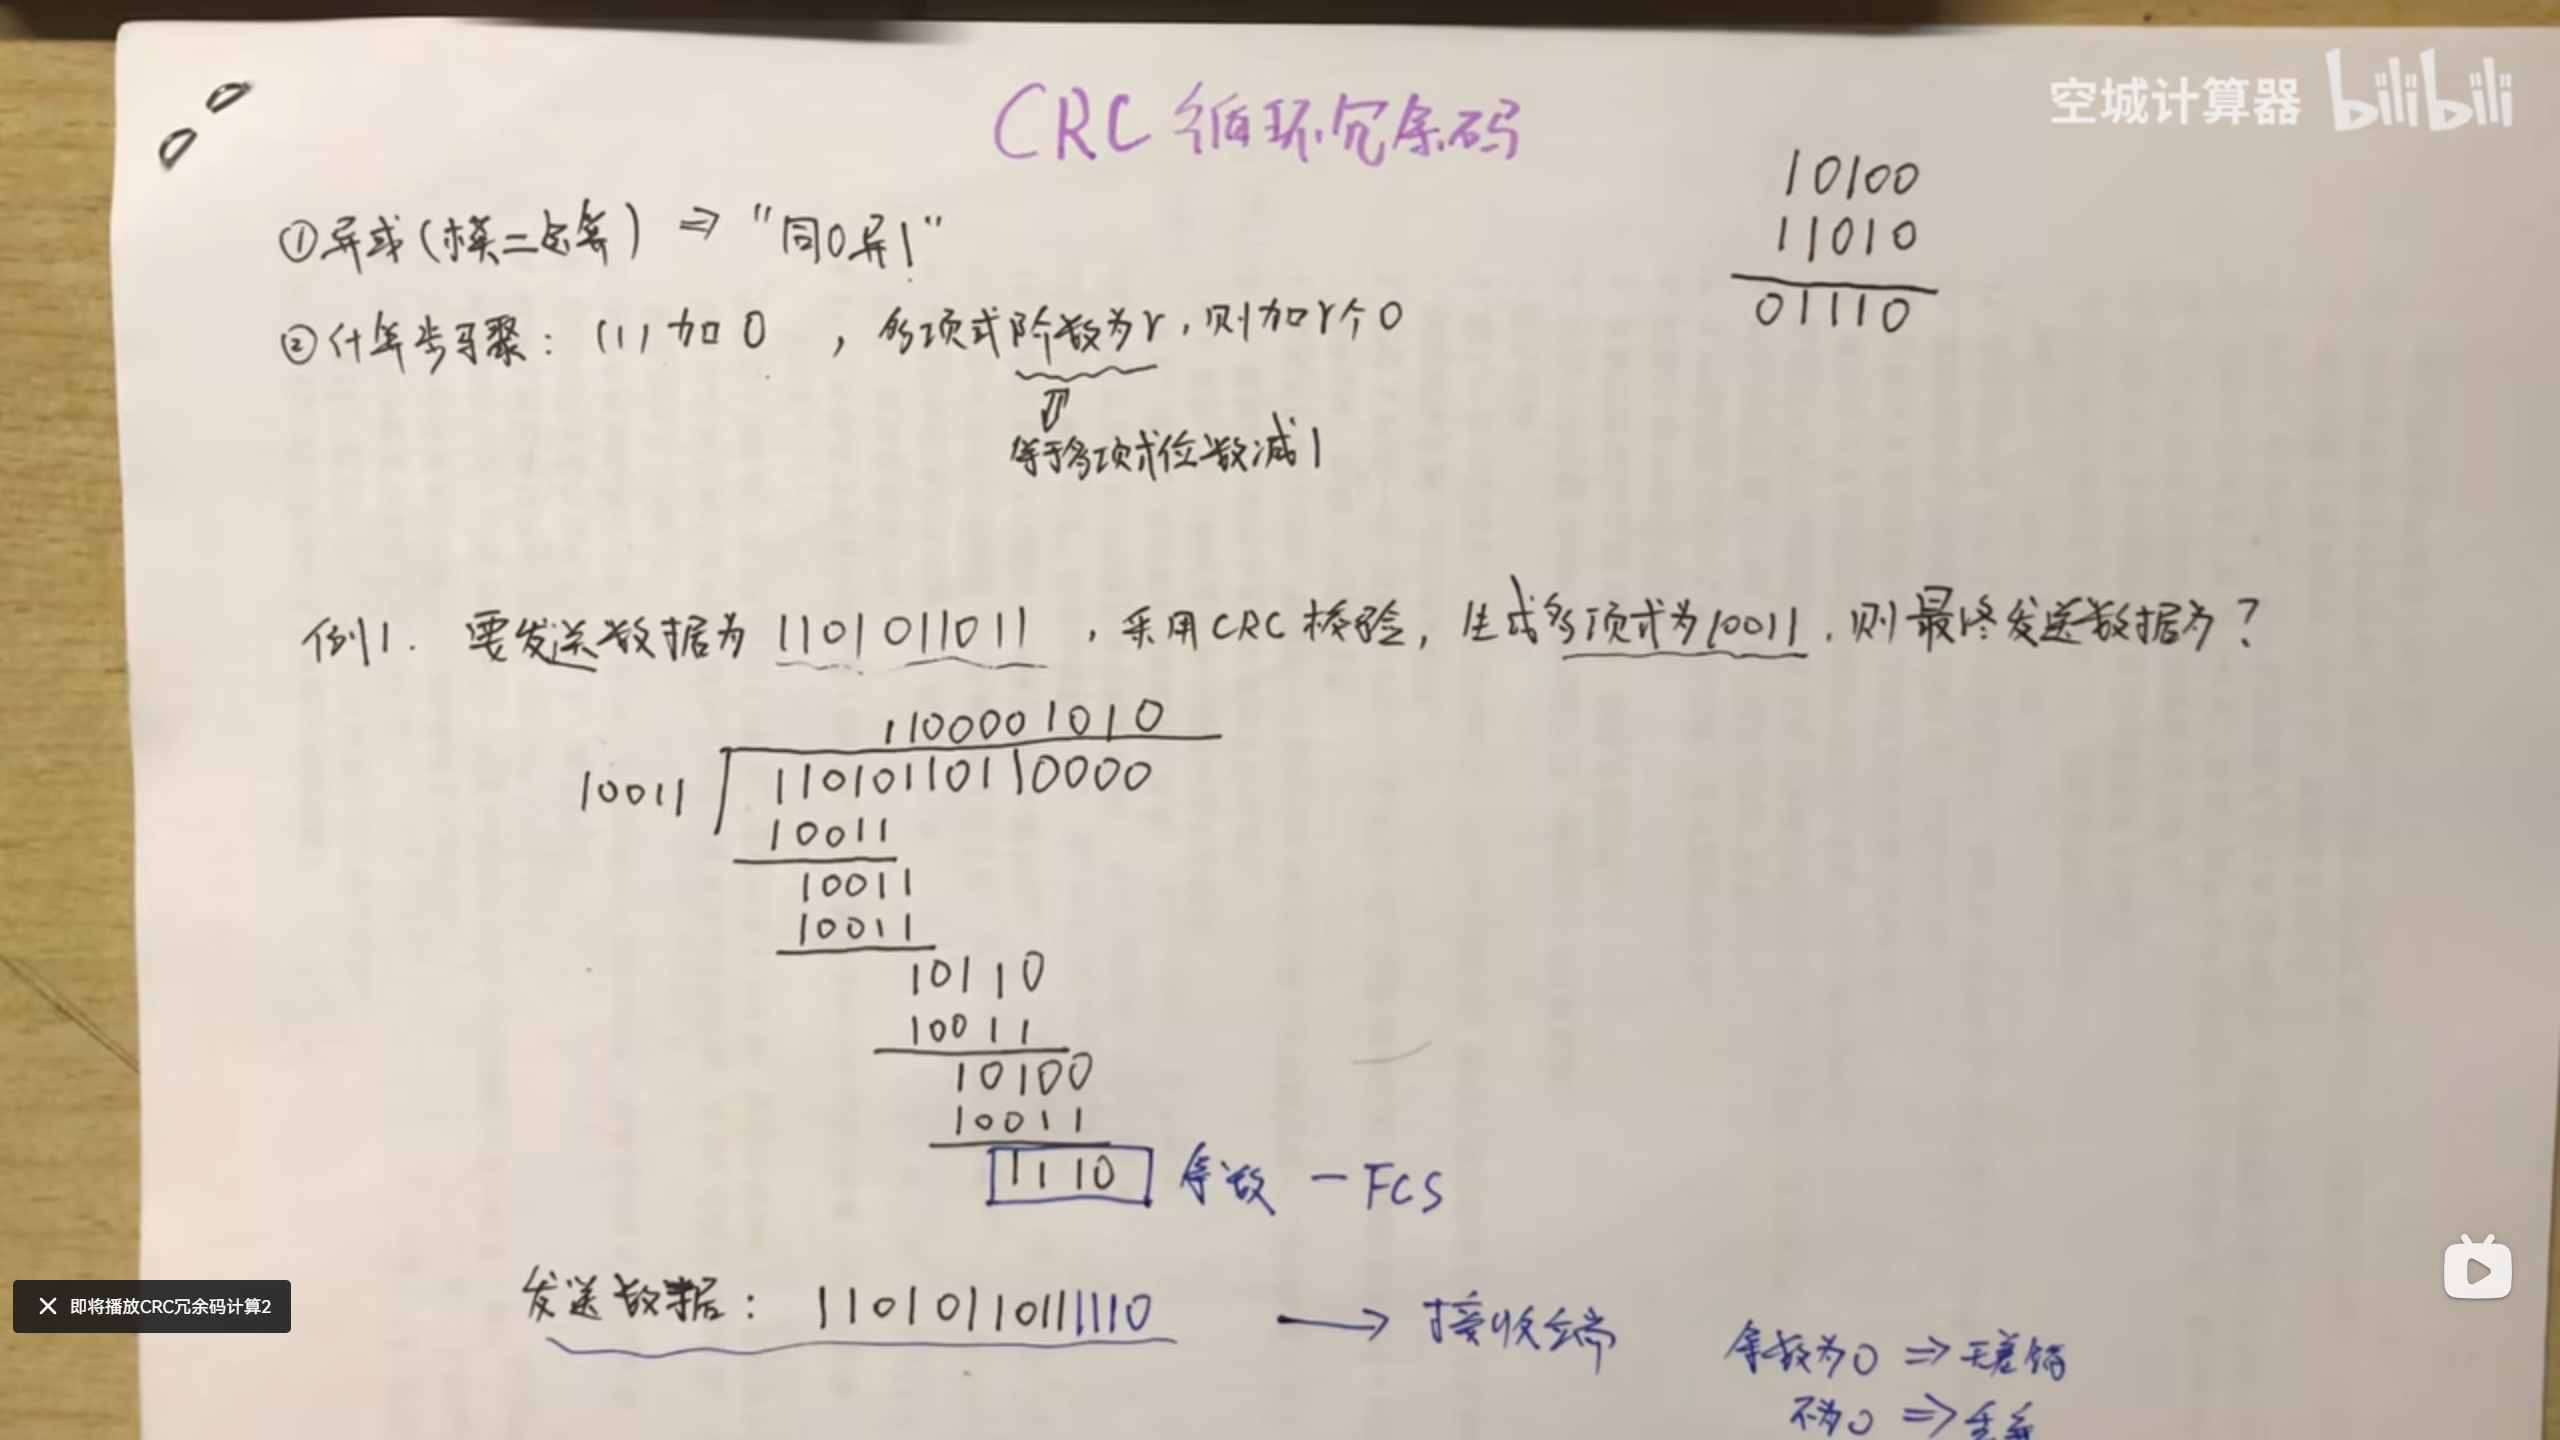 CRC 循环冗余码
空城计算器 bilibili
10100
11010
01110
①异或(模二运算) ⇒ "同0异1"
②计算步骤: (1) 加0 , 多项式阶数为r, 则加r个0
⇓
等于多项式位数减1
例1. 要发送数据为 1101011011 , 采用CRC校验, 生成多项式为10011, 则最终发送数据为?
1100001010
10011 11010110110000
10011
10011
10011
10110
10011
10100
10011
1110 余数 - FCS
发送数据: 11010110111110 → 接收端
余数为0 ⇒ 无差错
不为0 ⇒
× 即将播放CRC冗余码计算2